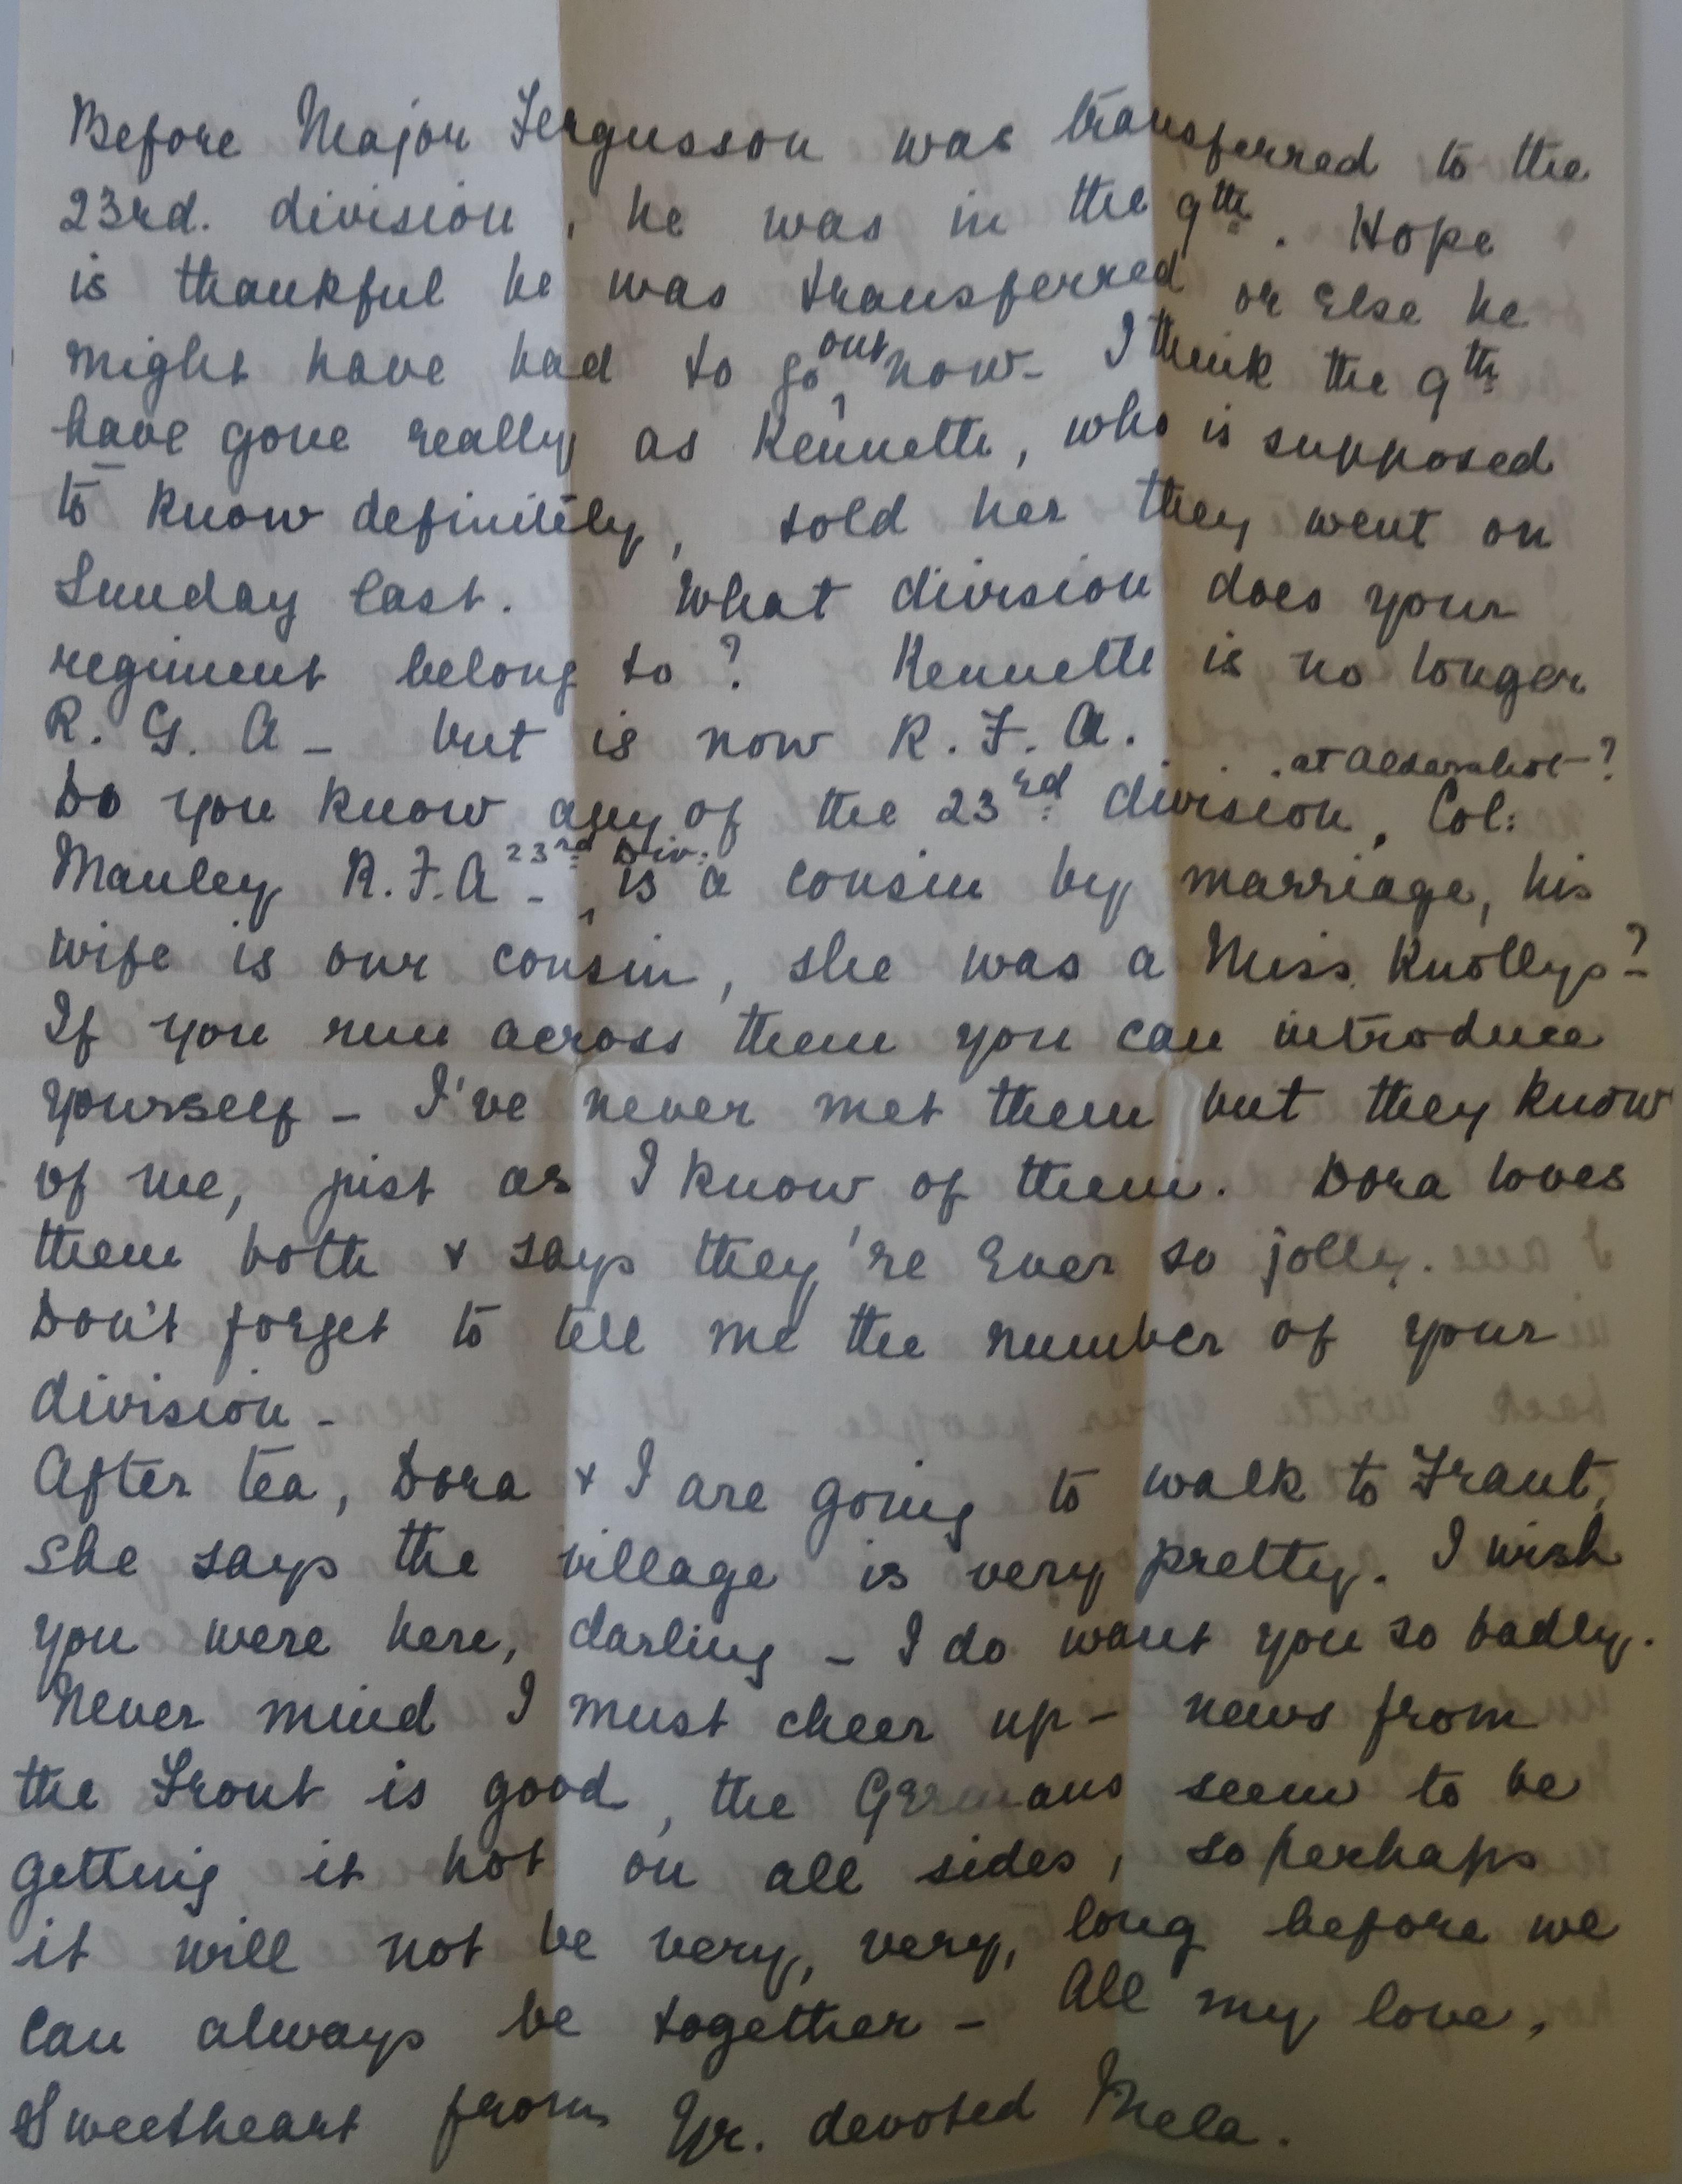 Before Major Fergusson was transferred to the
23rd. division, he was in the 9th. Hope
is thankful he was transferred or else he
might have had to go out now - I think the 9th
have gone really as Kennette, who is supposed
to know definitely, told her they went on
Sunday last. What division does your
regiment belong to? Kennette is no longer
R. G. A - but is now R. F. A.
Do you know any of the 23rd division, at Aldershot - ? Col:
Manley R.F.A - 23rd Div: is a cousin by marriage, his
wife is our cousin, she was a Miss Knollys?
If you run across them you can introduce
yourself - I've never met them but they know
of me, just as I know of them. Dora loves
them both & says they're ever so jolly.
Don't forget to tell me the number of your
division -
After tea, Dora & I are going to walk to Frant,
she says the village is very pretty. I wish
you were here, darling - I do want you so badly.
Never mind I must cheer up - news from
the Front is good, the Germans seem to be
getting it hot on all sides, so perhaps
it will not be very, very, long before we
can always be together - All my love,
Sweetheart from Yr. devoted Mela.